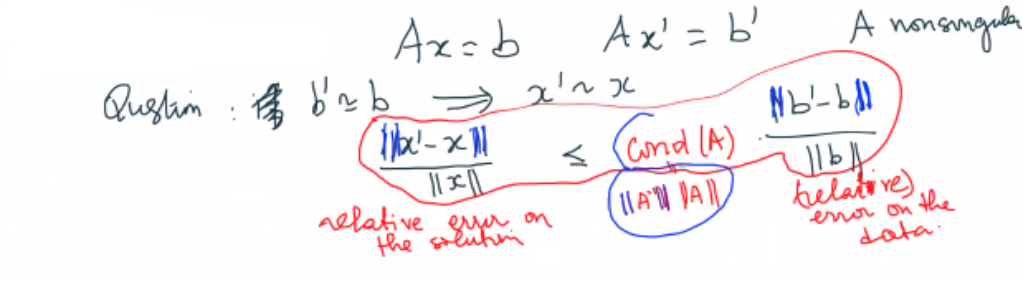 Ax = b    Ax' = b'    A nonsingular
Question : b' ≃ b ⟹ x' ~ x
||x' - x|| / ||x|| ≤ cond(A) · ||b' - b|| / ||b||
||A⁻¹|| ||A||
relative error on the solution
(relative) error on the data.